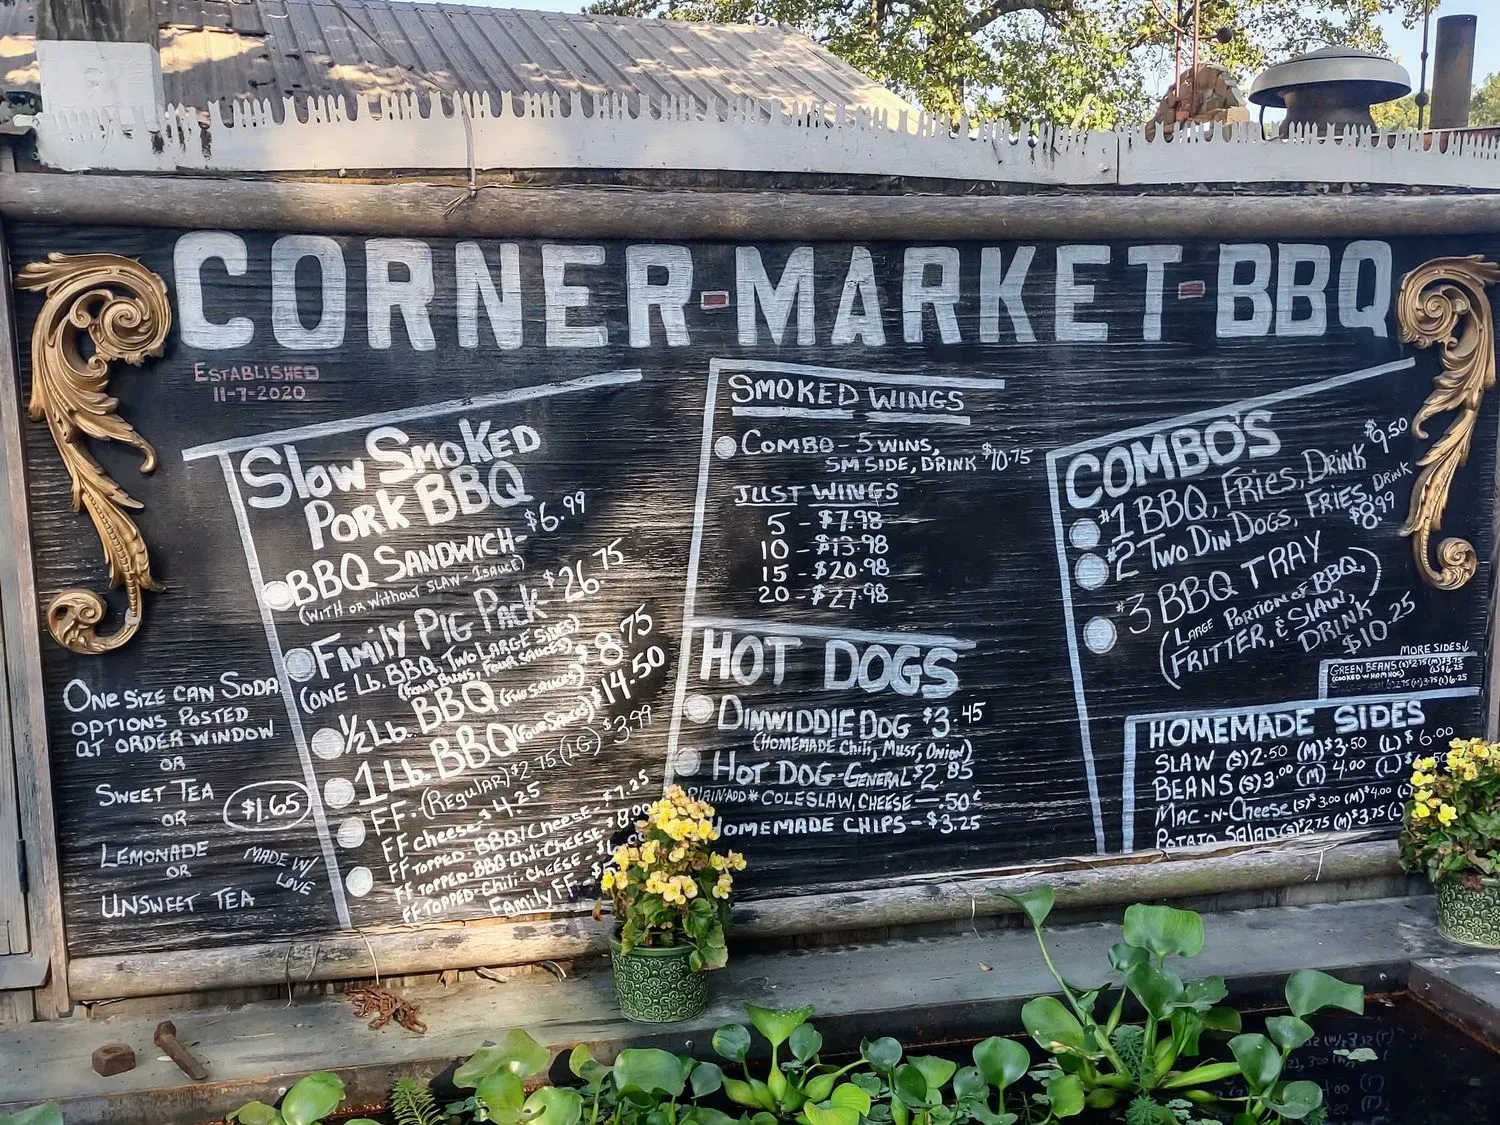 CORNER-MARKET-BBQ
ESTABLISHED
11-7-2020
Slow Smoked
Pork BBQ
BBQ SANDWICH- $6.99
(WITH OR WITHOUT SLAW - 1 SAUCE)
FAMILY PIG PACK- $26.75
(ONE Lb. BBQ, TWO LARGE SIDES)
(FOUR BUNS, FOUR SAUCES)
½ Lb. BBQ (TWO SAUCES) $8.75
1 Lb. BBQ (FOUR SAUCES) $14.50
FF. (REGULAR) $2.75 (LG) $3.99
FF CHEESE $4.25
FF TOPPED-BBQ/CHEESE-$7.25
FF TOPPED-BBQ Chili-CHEESE-$8.00
FF TOPPED-Chili-CHEESE-
FAMILY FF-
ONE SIZE CAN SODA
OPTIONS POSTED
AT ORDER WINDOW
OR
SWEET TEA
$1.65
OR
LEMONADE
OR
UNSWEET TEA
MADE W/
LOVE
SMOKED WINGS
COMBO - 5 WINS,
SM SIDE, DRINK $10.75
JUST WINGS
5 - $7.98
10 - $13.98
15 - $20.98
20 - $27.98
HOT DOGS
DINWIDDIE DOG $3.45
(HOMEMADE Chili, MUST, ONION)
HOT DOG-GENERAL $2.85
PLAIN-ADD* COLESLAW, CHEESE — .50¢
HOMEMADE CHIPS - $3.25
COMBO'S
#1 BBQ, FRIES, DRINK $9.50
#2 TWO DIN DOGS, FRIES, DRINK $8.99
#3 BBQ TRAY
(LARGE PORTION OF BBQ,
FRITTER, & SLAW,)
DRINK
$10.25
MORE SIDES↓
GREEN BEANS (S) $2.75 (M) $3.75
(COOKED W HAM HOG) (L) $6.25
HOMEMADE SIDES
SLAW (S) 2.50 (M) $3.50 (L) $6.00
BEANS (S) 3.00 (M) 4.00 (L) $6.50
MAC-N-CHEESE (S) $3.00 (M) $4.00 (L)
POTATO SALAD (S) $2.75 (M) $3.75 (L)